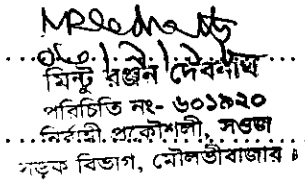 মিন্টু রঞ্জন দেবনাথ
পরিচিতি নং- ৬০১৯২০
নির্বাহী প্রকৌশলী, সওজ
সড়ক বিভাগ, মৌলভীবাজার ।